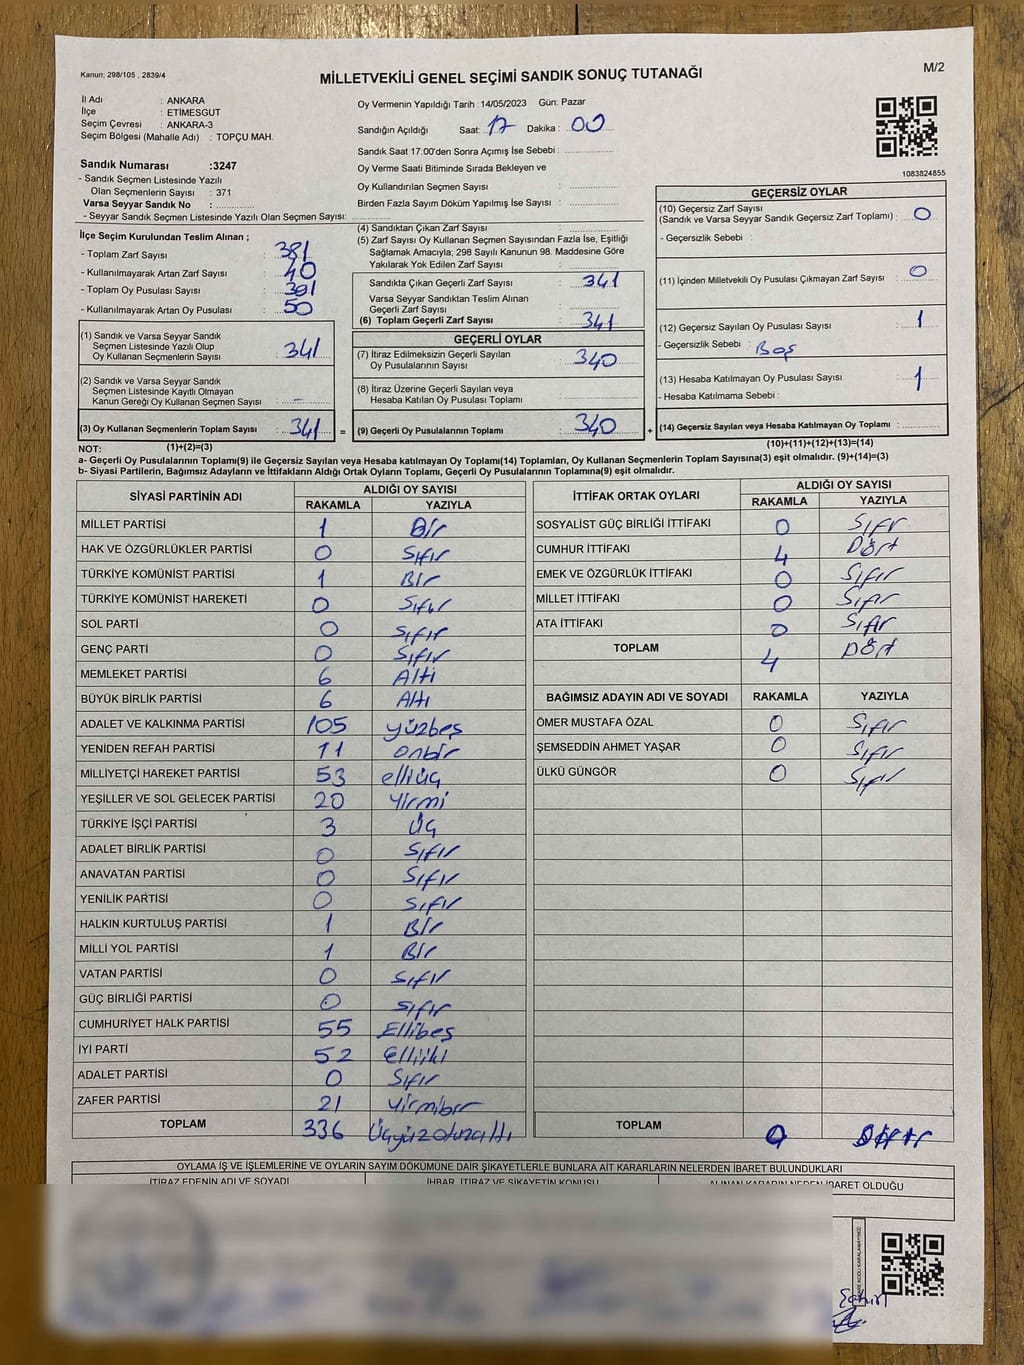 Kanun; 298/105 , 2839/4
MİLLETVEKİLİ GENEL SEÇİMİ SANDIK SONUÇ TUTANAĞI
M/2
İl Adı : ANKARA
İlçe : ETİMESGUT
Seçim Çevresi : ANKARA-3
Seçim Bölgesi (Mahalle Adı) : TOPÇU MAH.
Sandık Numarası :3247
- Sandık Seçmen Listesinde Yazılı
Olan Seçmenlerin Sayısı : 371
Varsa Seyyar Sandık No :
- Seyyar Sandık Seçmen Listesinde Yazılı Olan Seçmen Sayısı:
Oy Vermenin Yapıldığı Tarih : 14/05/2023 Gün: Pazar
Sandığın Açıldığı Saat: 17 Dakika : 00
Sandık Saat 17:00'den Sonra Açımış İse Sebebi :
Oy Verme Saati Bitiminde Sırada Bekleyen ve
Oy Kullandırılan Seçmen Sayısı :
Birden Fazla Sayım Döküm Yapılmış İse Sayısı :
1083824855
İlçe Seçim Kurulundan Teslim Alınan ;
- Toplam Zarf Sayısı : 381
- Kullanılmayarak Artan Zarf Sayısı : 40
- Toplam Oy Pusulası Sayısı : 391
- Kullanılmayarak Artan Oy Pusulası : 50
(1) Sandık ve Varsa Seyyar Sandık
Seçmen Listesinde Yazılı Olup
Oy Kullanan Seçmenlerin Sayısı : 341
(2) Sandık ve Varsa Seyyar Sandık
Seçmen Listesinde Kayıtlı Olmayan
Kanun Gereği Oy Kullanan Seçmen Sayısı : -
(3) Oy Kullanan Seçmenlerin Toplam Sayısı : 341 =
(4) Sandıktan Çıkan Zarf Sayısı :
(5) Zarf Sayısı Oy Kullanan Seçmen Sayısından Fazla İse, Eşitliği
Sağlamak Amacıyla, 298 Sayılı Kanunun 98. Maddesine Göre
Yakılarak Yok Edilen Zarf Sayısı :
Sandıkta Çıkan Geçerli Zarf Sayısı : 341
Varsa Seyyar Sandıktan Teslim Alınan
Geçerli Zarf Sayısı :
(6) Toplam Geçerli Zarf Sayısı : 341
GEÇERLİ OYLAR
(7) İtiraz Edilmeksizin Geçerli Sayılan
Oy Pusulalarının Sayısı : 340
(8) İtiraz Üzerine Geçerli Sayılan veya
Hesaba Katılan Oy Pusulası Toplamı :
(9) Geçerli Oy Pusulalarının Toplamı : 340 +
GEÇERSİZ OYLAR
(10) Geçersiz Zarf Sayısı
(Sandık ve Varsa Seyyar Sandık Geçersiz Zarf Toplamı) : 0
- Geçersizlik Sebebi :
(11) İçinden Milletvekili Oy Pusulası Çıkmayan Zarf Sayısı : 0
(12) Geçersiz Sayılan Oy Pusulası Sayısı : 1
- Geçersizlik Sebebi : Boş
(13) Hesaba Katılmayan Oy Pusulası Sayısı : 1
- Hesaba Katılmama Sebebi :
(14) Geçersiz Sayılan veya Hesaba Katılmayan Oy Toplamı :
NOT: (1)+(2)=(3)
(10)+(11)+(12)+(13)=(14)
a- Geçerli Oy Pusulalarının Toplamı(9) ile Geçersiz Sayılan veya Hesaba katılmayan Oy Toplamı(14) Toplamları, Oy Kullanan Seçmenlerin Toplam Sayısına(3) eşit olmalıdır. (9)+(14)=(3)
b- Siyasi Partilerin, Bağımsız Adayların ve İttifakların Aldığı Ortak Oyların Toplamı, Geçerli Oy Pusulalarının Toplamına(9) eşit olmalıdır.
SİYASİ PARTİNİN ADI ALDIĞI OY SAYISI
RAKAMLA YAZIYLA
MİLLET PARTİSİ 1 Bir
HAK VE ÖZGÜRLÜKLER PARTİSİ 0 Sıfır
TÜRKİYE KOMÜNİST PARTİSİ 1 Bir
TÜRKİYE KOMÜNİST HAREKETİ 0 Sıfır
SOL PARTİ 0 Sıfır
GENÇ PARTİ 0 Sıfır
MEMLEKET PARTİSİ 6 Altı
BÜYÜK BİRLİK PARTİSİ 6 Altı
ADALET VE KALKINMA PARTİSİ 105 yüzbeş
YENİDEN REFAH PARTİSİ 11 onbir
MİLLİYETÇİ HAREKET PARTİSİ 53 elliüç
YEŞİLLER VE SOL GELECEK PARTİSİ 20 Yirmi
TÜRKİYE İŞÇİ PARTİSİ 3 Üç
ADALET BİRLİK PARTİSİ 0 Sıfır
ANAVATAN PARTİSİ 0 Sıfır
YENİLİK PARTİSİ 0 Sıfır
HALKIN KURTULUŞ PARTİSİ 1 Bir
MİLLİ YOL PARTİSİ 1 Bir
VATAN PARTİSİ 0 Sıfır
GÜÇ BİRLİĞİ PARTİSİ 0 Sıfır
CUMHURİYET HALK PARTİSİ 55 Ellibeş
İYİ PARTİ 52 Elliiki
ADALET PARTİSİ 0 Sıfır
ZAFER PARTİSİ 21 Yirmibir
TOPLAM 336 Üçyüzotuzaltı
İTTİFAK ORTAK OYLARI ALDIĞI OY SAYISI
RAKAMLA YAZIYLA
SOSYALİST GÜÇ BİRLİĞİ İTTİFAKI 0 Sıfır
CUMHUR İTTİFAKI 4 Dört
EMEK VE ÖZGÜRLÜK İTTİFAKI 0 Sıfır
MİLLET İTTİFAKI 0 Sıfır
ATA İTTİFAKI 0 Sıfır
TOPLAM 4 Dört
BAĞIMSIZ ADAYIN ADI VE SOYADI RAKAMLA YAZIYLA
ÖMER MUSTAFA ÖZAL 0 Sıfır
ŞEMSEDDİN AHMET YAŞAR 0 Sıfır
ÜLKÜ GÜNGÖR 0 Sıfır
TOPLAM 0 Sıfır
OYLAMA İŞ VE İŞLEMLERİNE VE OYLARIN SAYIM DÖKÜMÜNE DAİR ŞİKAYETLERLE BUNLARA AİT KARARLARIN NELERDEN İBARET BULUNDUKLARI
İTİRAZ EDENİN ADI VE SOYADI İHBAR, İTİRAZ VE ŞİKAYETİN KONUSU ALINAN KARARIN NEDEN İBARET OLDUĞU